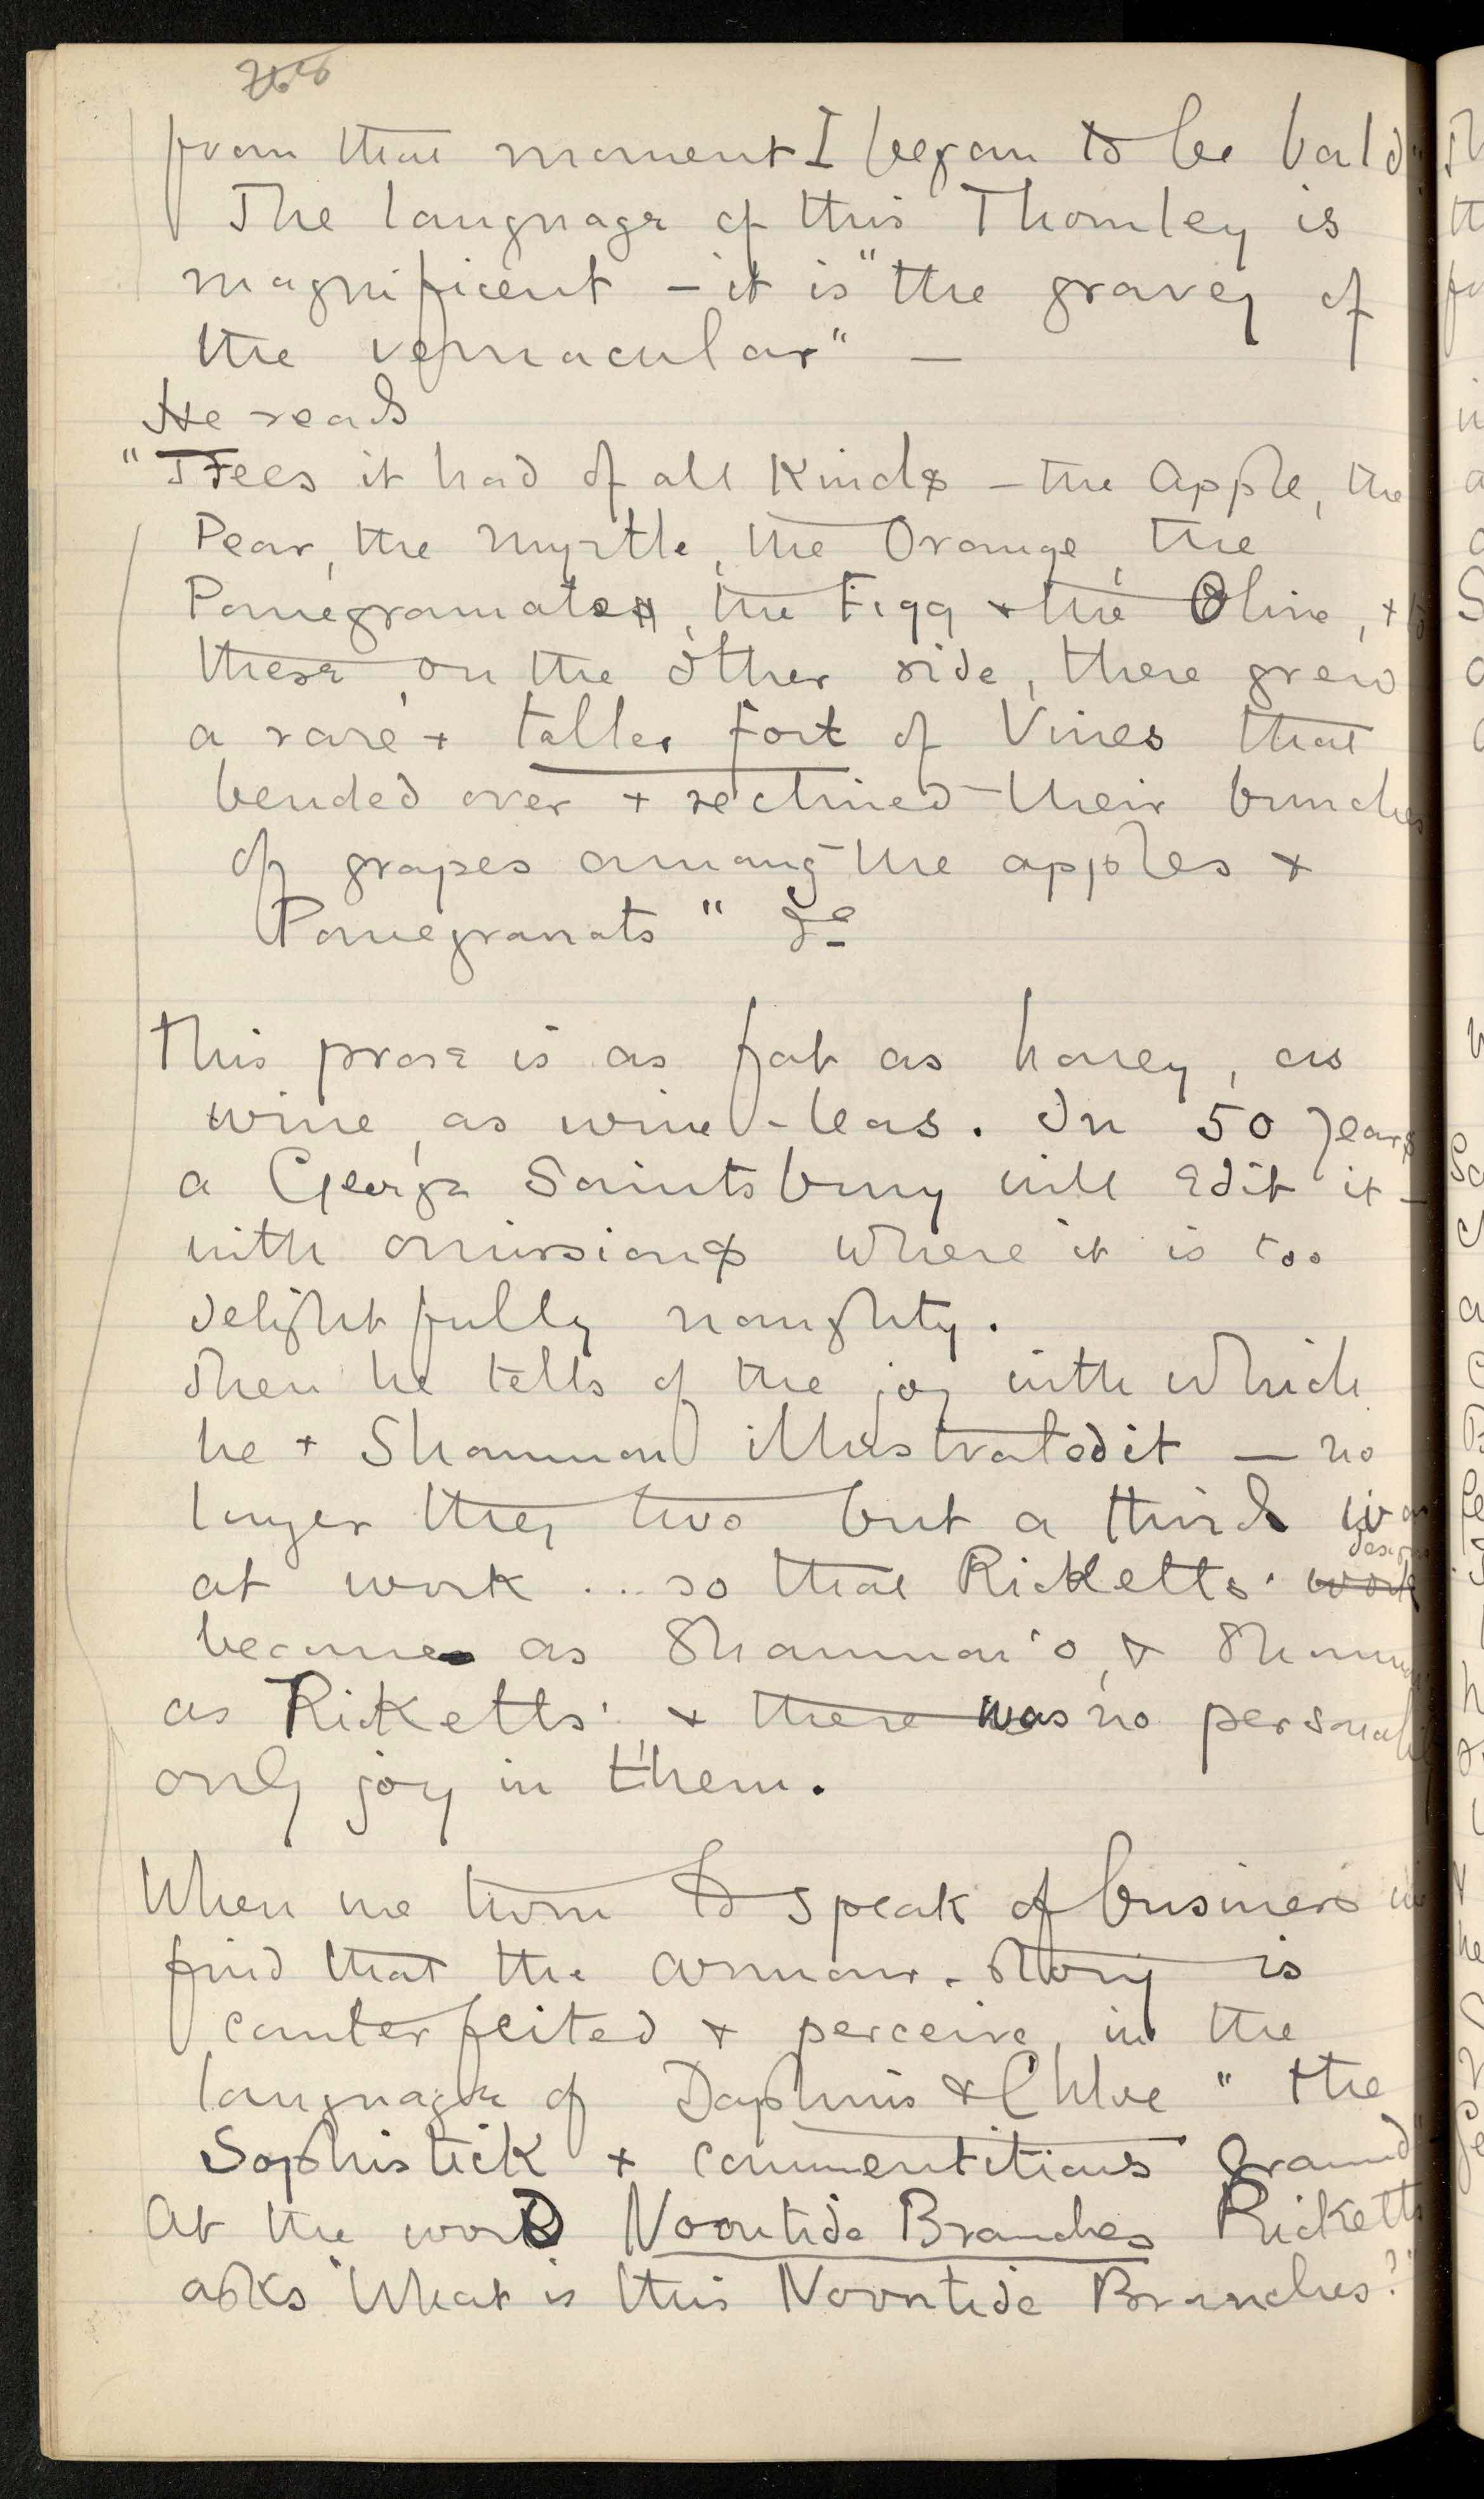 from that moment I began to be bald"
The language of this Thornley is
magnificent – it is "the gravey of
the vernacular" —
He reads
"Trees it had of all Kinds – the Apple, the
Pear, the Myrtle, the Orange, the
Pomegranates, the Figg + the Olive, +
these, on the other side, there grew
a rare + taller fort of Vines that
bended over + reclined their bunches
of grapes among the apples +
Pomegranats" &c
This prose is as fat as honey, as
wine, as wine-leas. In 50 years
a George Saintsbury will edit it –
with omissions where it is too
delightfully naughty.
Then he tells of the joy with which
he + Shannon illustrated it — no
longer they two but a third was
at work ... so that Ricketts' work
became as Shannon's, &
as Ricketts' + there was no
only joy in them.
When we turn to speak of business
find that the armour-story is
counterfeited + perceive, in the
language of Daphnis & Chloe "the
Sophistick + commentitious Ground"
At the word Noontide Branches Ricketts
asks "What is this Noontide Branches?"